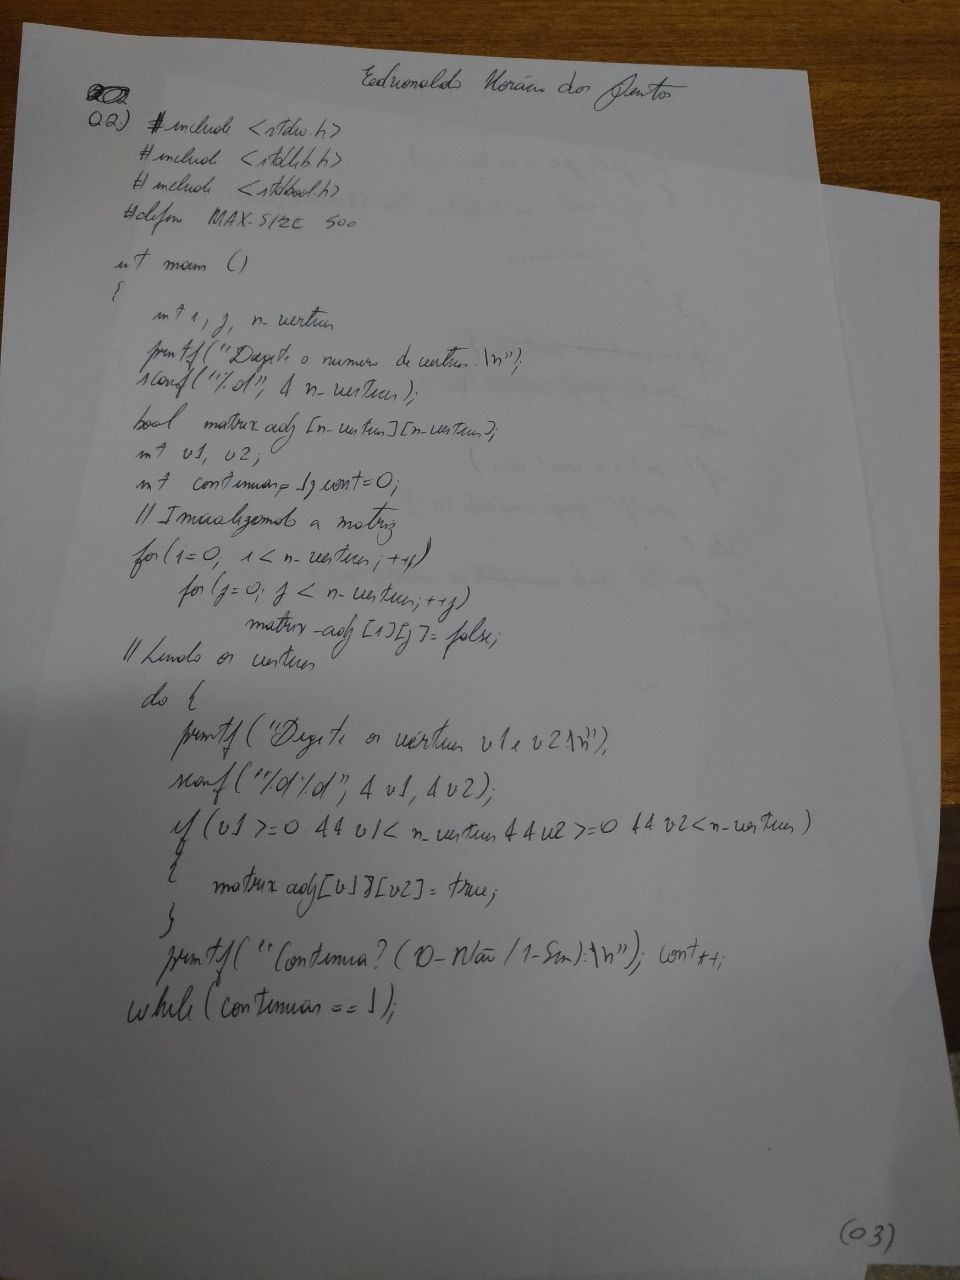 Edronaldo Horácio dos Santos
Q2) #include <stdio.h>
#include <stdlib.h>
#include <stdbool.h>
#define MAX-SIZE 500
int main ()
{
int i, j, n-vertices
printf("Digite o numero de vertices:\n");
scanf("%d", & n-vertices);
bool matrix adj [n-vertices][n-vertices];
int v1, v2;
int continuar= 1; cont=0;
// Inicializando a matriz
for(i=0; i < n-vertices; ++i)
for(j=0; j < n-vertices; ++j)
matrix-adj [i][j]= false;
// Lendo os vertices
do {
printf("Digite os vértices v1 e v2:\n");
scanf("%d%d", & v1, & v2);
if (v1 >=0 && v1< n-vertices && v2 >=0 && v2<n-vertices)
{
matrix adj[v1][v2]= true;
}
printf("Continua? (0- Não / 1-Sim):\n"); cont++;
while(continuar == 1);
(03)